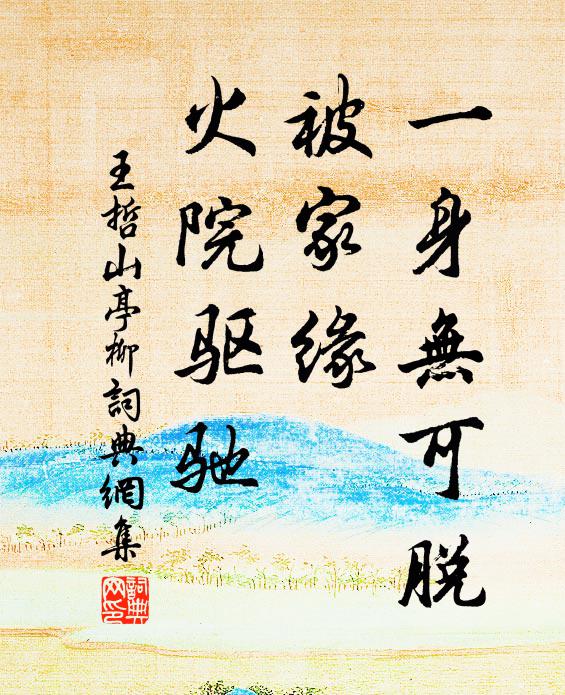 一身無可脫
被家缘
火院驱驰
王哲山亭柳詞典網集
詞典网印